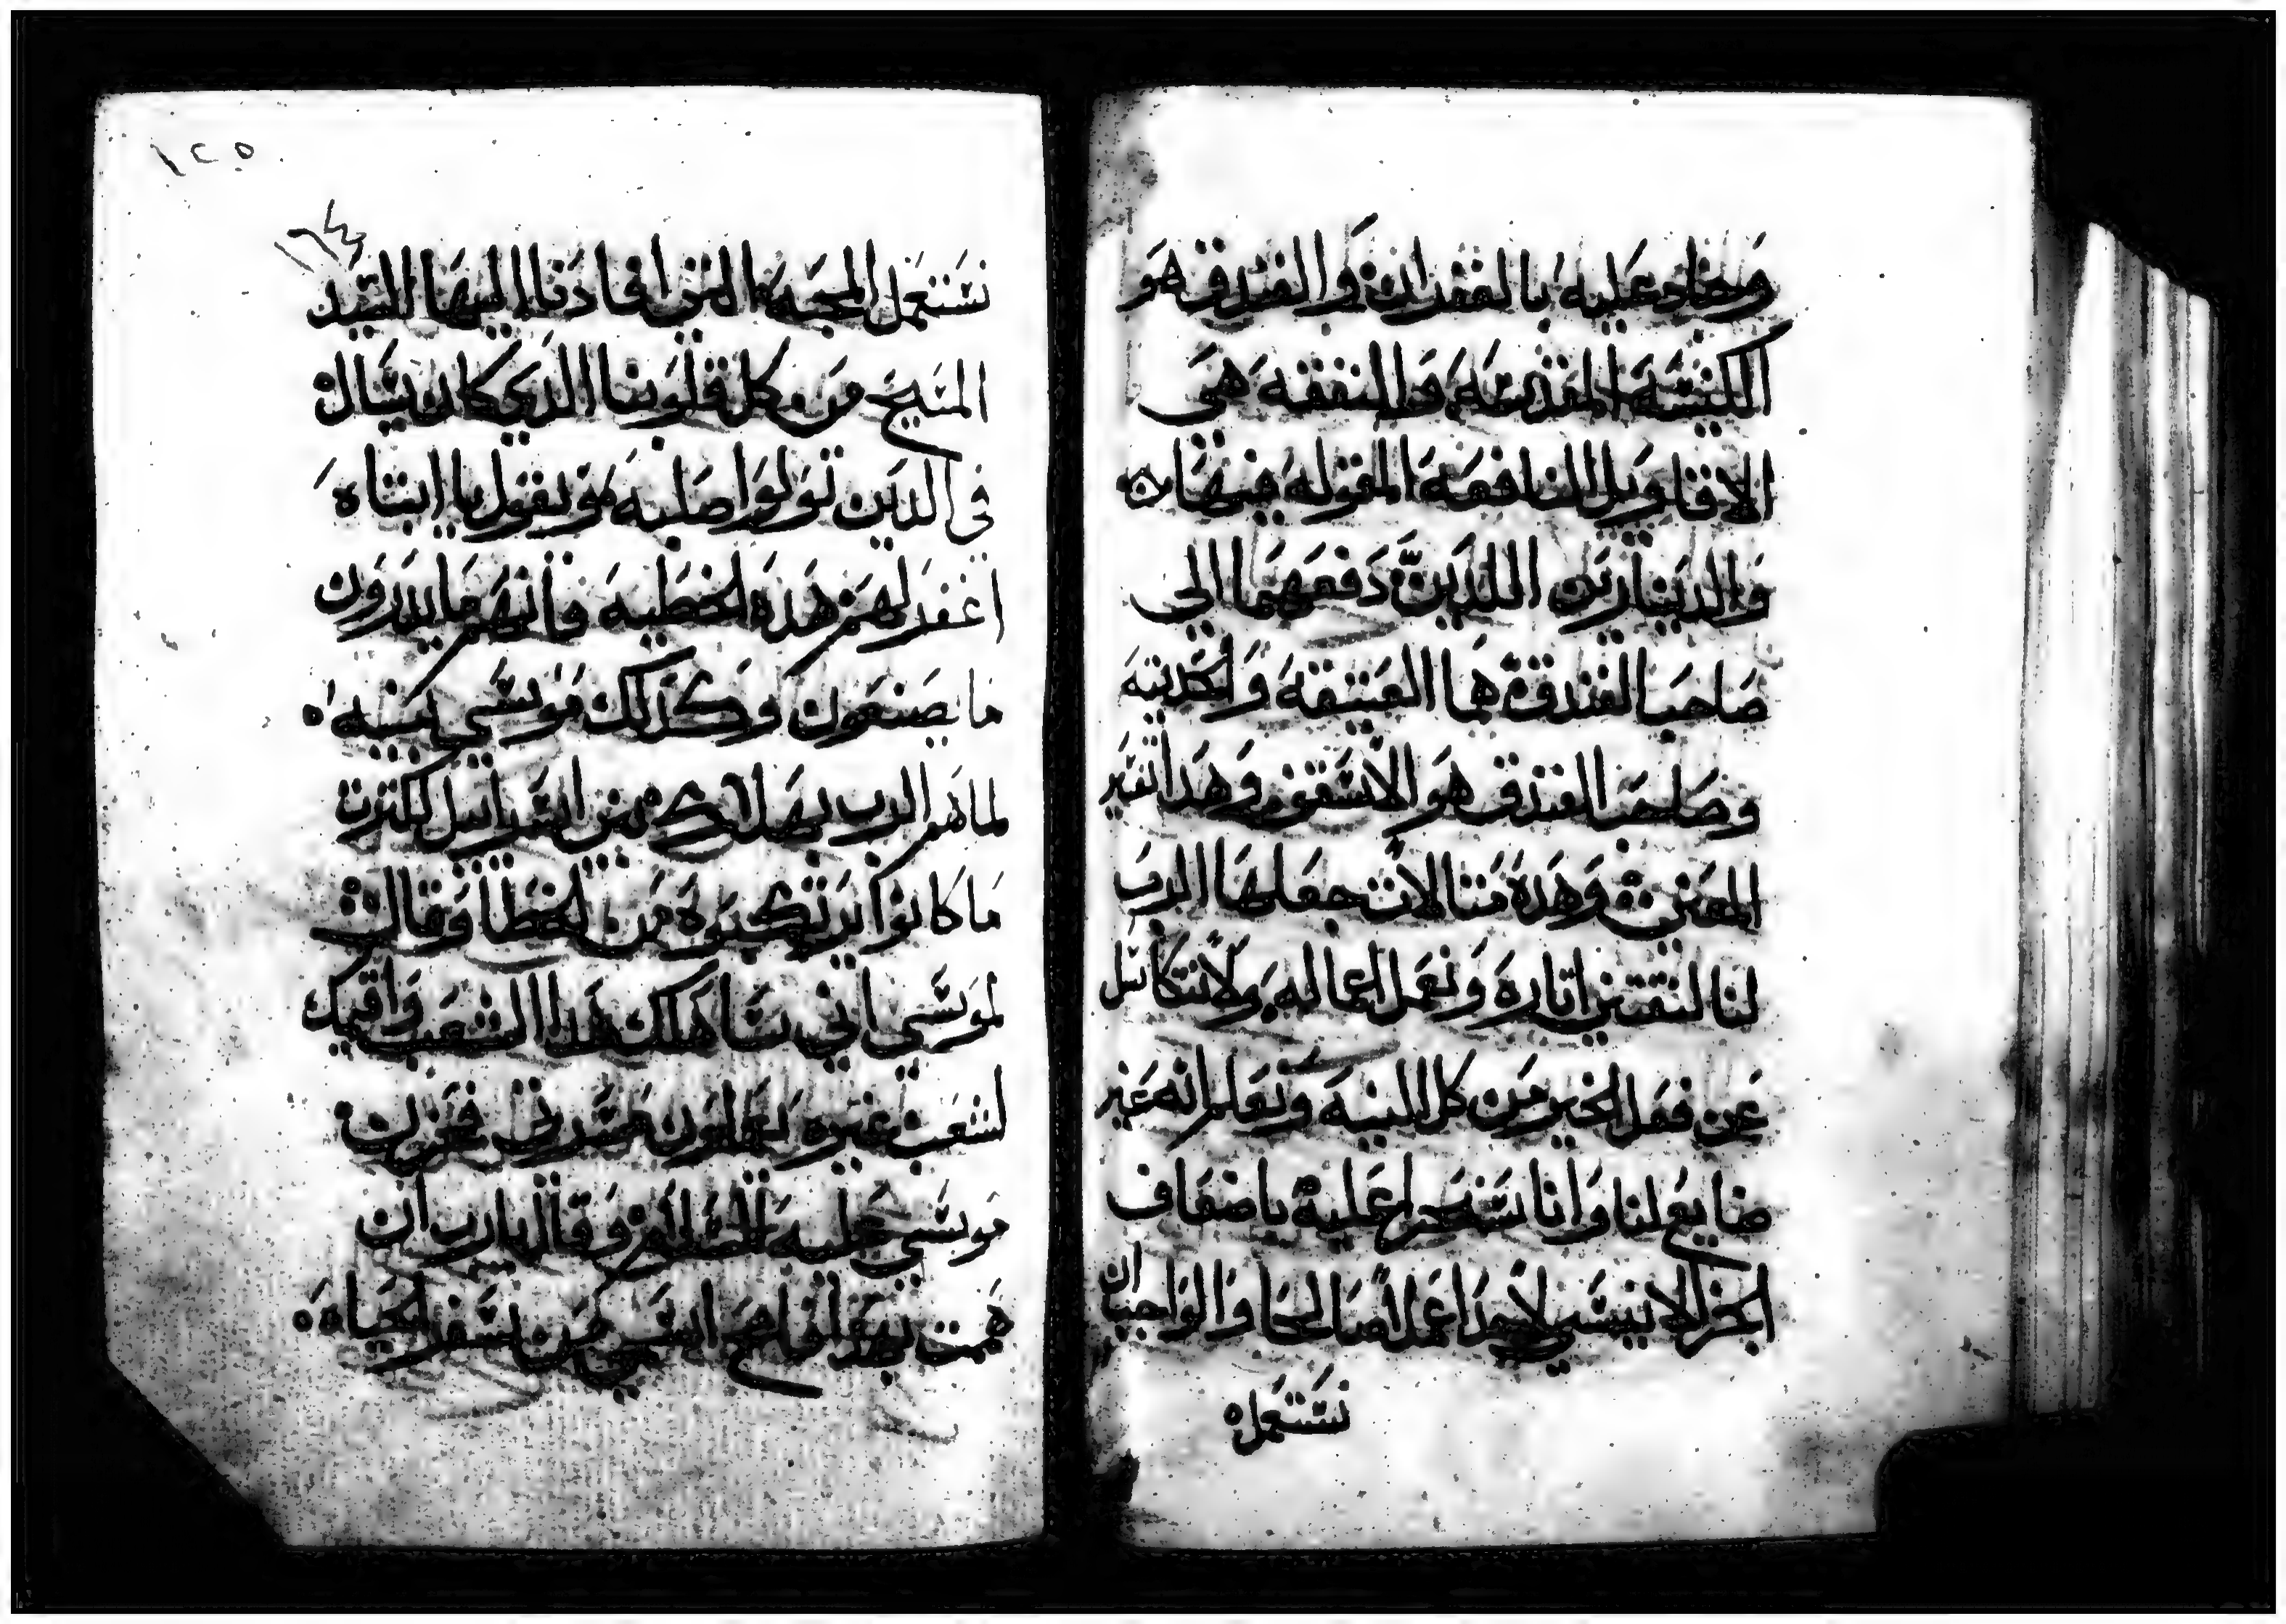 وجاد عليه بالغفران والفندق هو
الكنيسه المقدسه والنفقه هي
الاقاويل النافعه المقوله فيها
والدينارين اللدين دفعهما الى
صاحب الفندق هما العتيقه والحديثه
وصاحب الفندق هو الاسقف وهدا تفسير
المعنى وهده مثالات جعلها الرب
لنا لنقتفى اثاره ونعمل اعماله ولا نتكاسل
عن فعل الخير من كل النيه ونعلم انه غير
ضايع لنا واننا سنجزا عليه باضعاف
الجزا لا ينسى لاحد عملا صالحا والواجب ان
نستعمل
١٢٥
نستعمل المحبه التى افادنا اليها السيد
المسيح من كل قلوبنا الدي كان يسال
في الدين تولوا صلبه ويقول يا ابتاه
اغفر لهم هده الخطيه فانهم ما يدرون
ما يصنعون وكذلك موسي نبيه
لما هم الرب بهلاك بني اسراييل لكثرت
ما كانوا يرتكبوه من الخطا وقال
لموسي اني ساهلك هدا الشعب واقيمك
لشعب غيره يعملون مسرتى فحزن
موسي عليه السلام وقال يارب ان
هممت بهدا فامح اسمي من سفر الحياه